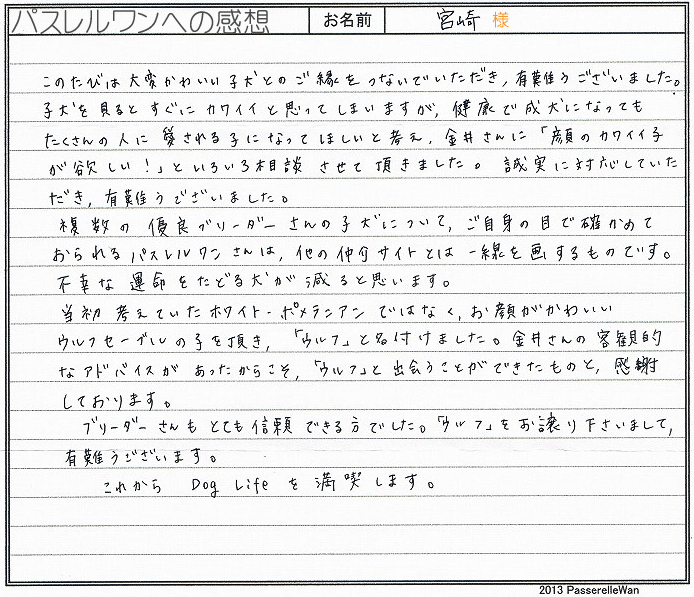 パスレルワンへの感想 お名前 宮崎 様
このたびは大変かわいい子犬とのご縁をつないでいただき、有難うございました。
子犬を見るとすぐにカワイイと思ってしまいますが、健康で成犬になっても
たくさんの人に愛される子になってほしいと考え、金井さんに「顔のカワイイ子
が欲しい！」といろいろ相談させて頂きました。誠実に対応していた
だき、有難うございました。
複数の優良ブリーダーさんの子犬について、ご自身の目で確かめて
おられるパスレルワンさんは、他の仲介サイトとは一線を画するものです。
不幸な運命をたどる犬が減ると思います。
当初考えていたホワイト・ポメラニアンではなく、お顔がかわいい
ウルフセーブルの子を頂き、「ウルフ」と名付けました。金井さんの客観的
なアドバイスがあったからこそ、「ウルフ」と出会うことができたものと、感謝
しております。
ブリーダーさんもとても信頼できる方でした。「ウルフ」をお譲り下さいまして、
有難うございます。
これから Dog Life を満喫します。
2013 PasserelleWan